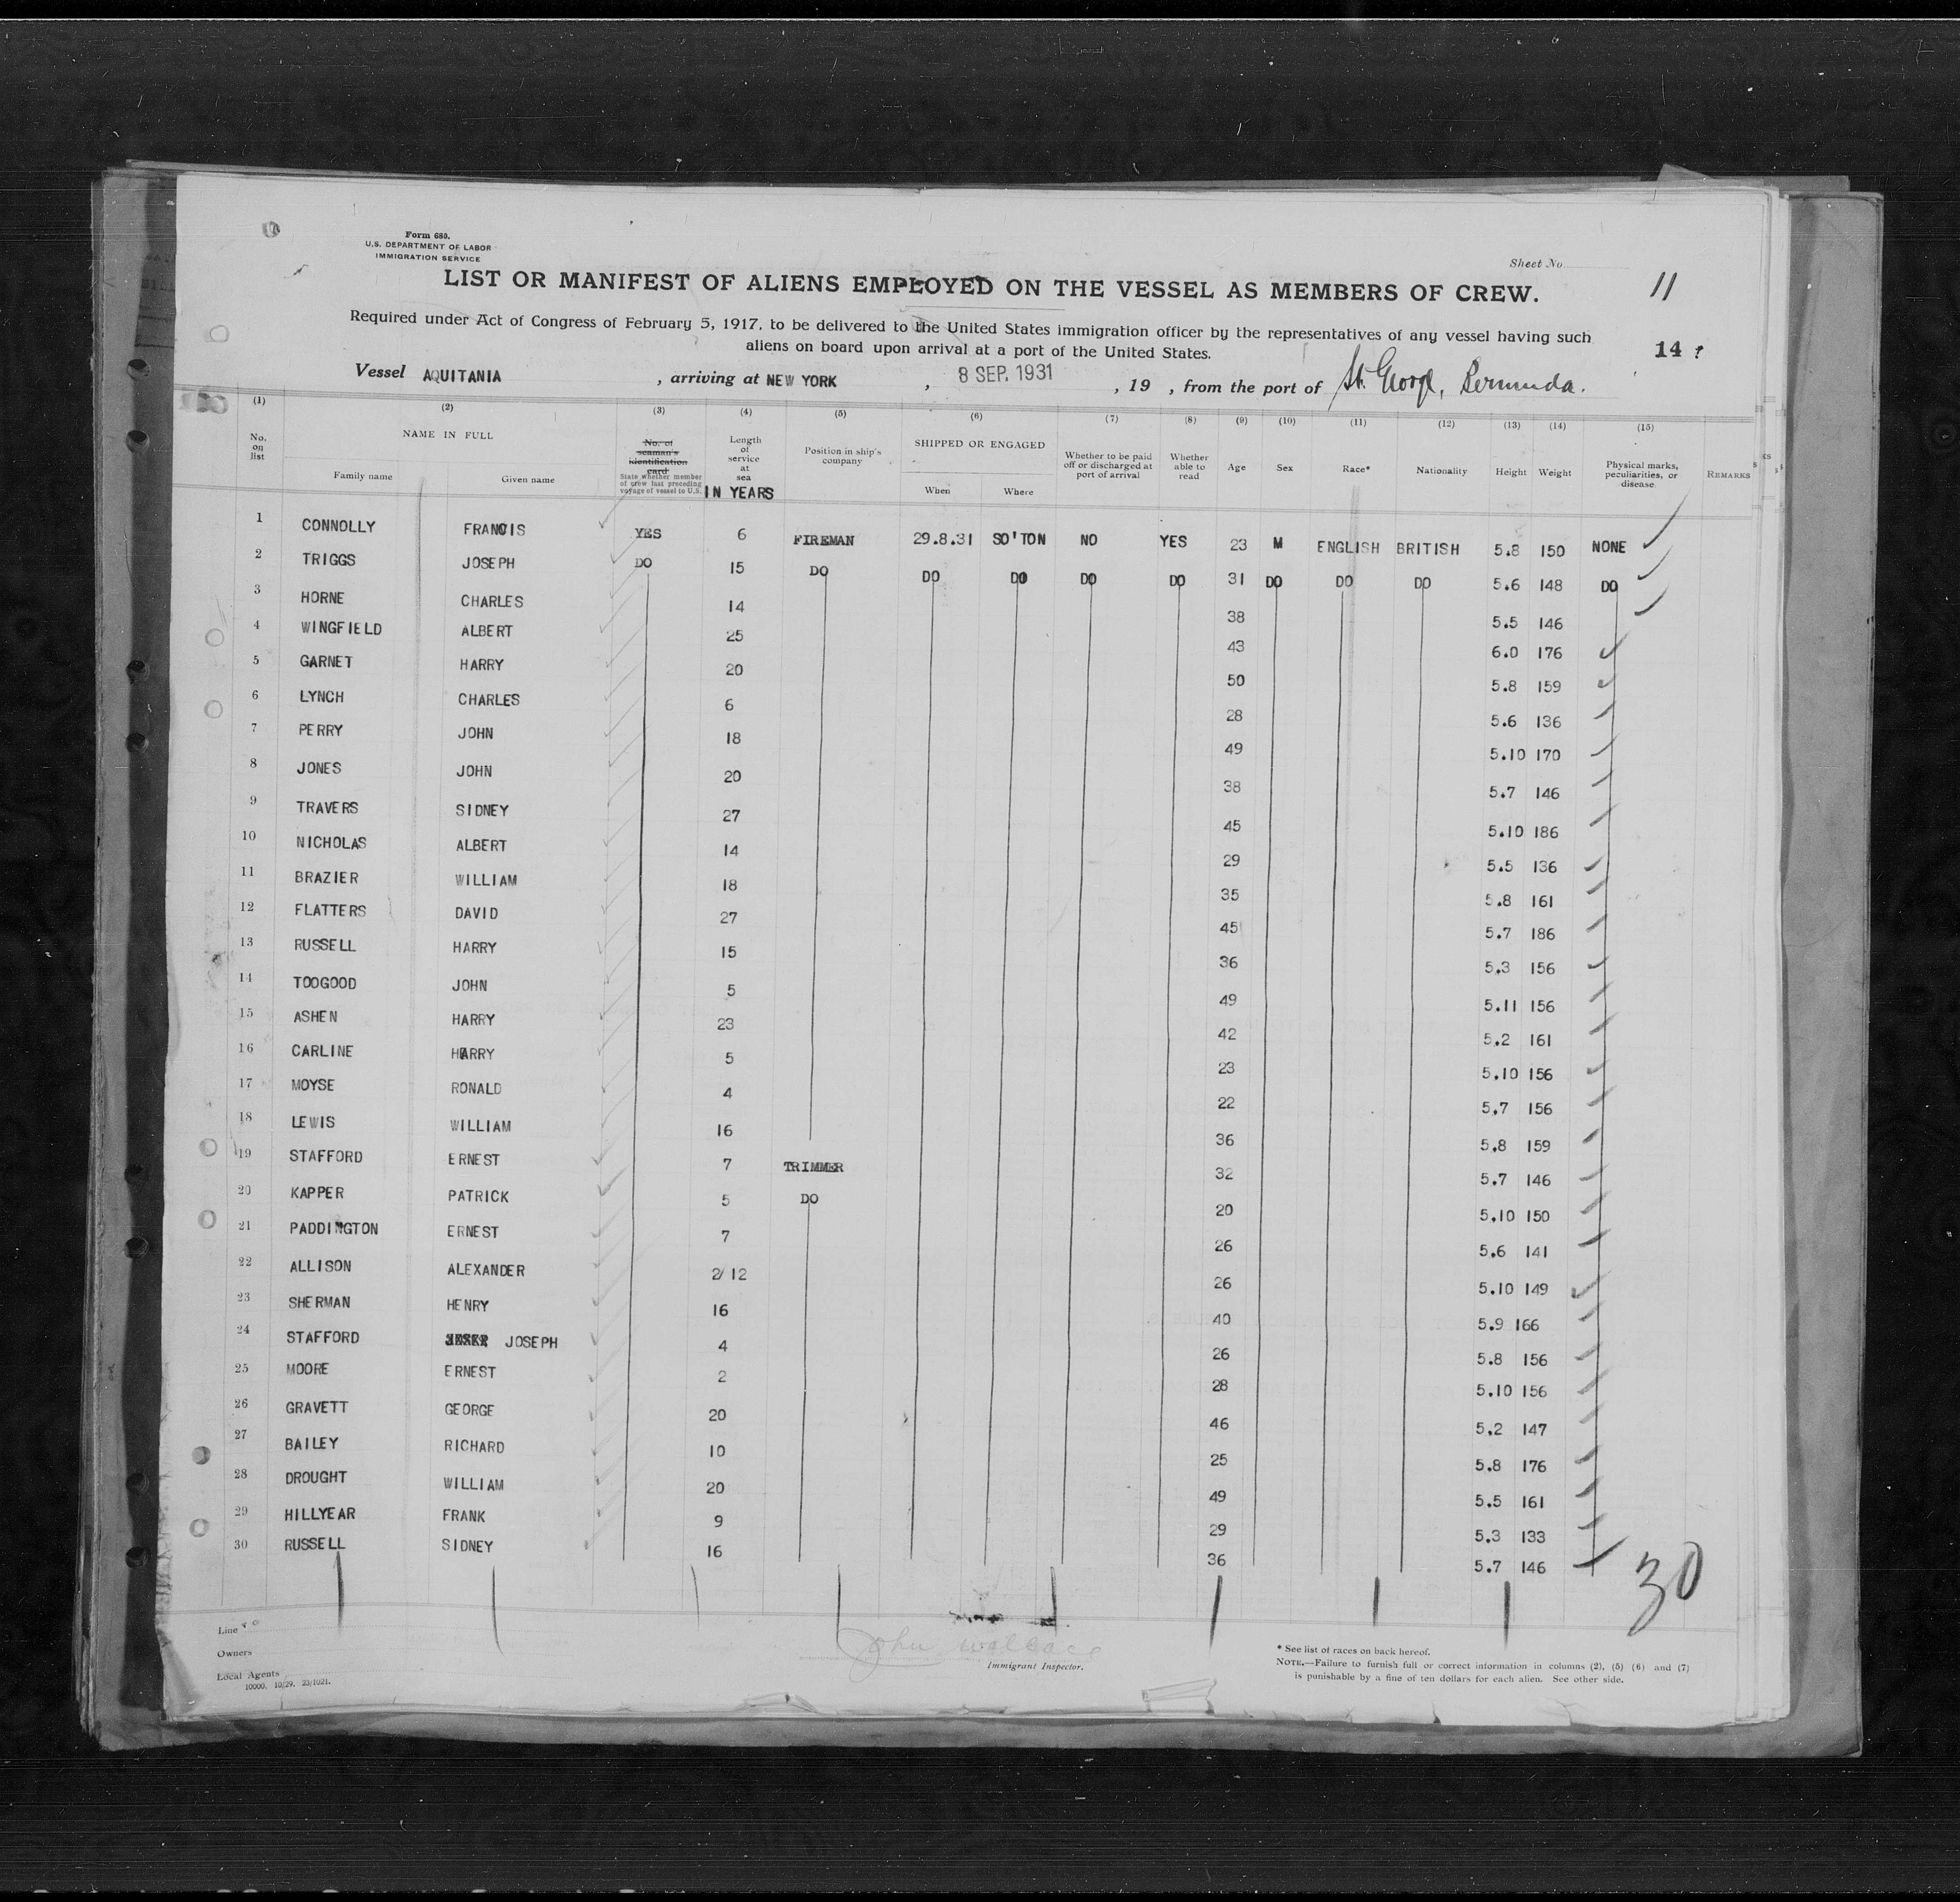 Form 680.
U.S. DEPARTMENT OF LABOR
IMMIGRATION SERVICE
Sheet No.
11
LIST OR MANIFEST OF ALIENS EMPLOYED ON THE VESSEL AS MEMBERS OF CREW.
Required under Act of Congress of February 5, 1917, to be delivered to the United States immigration officer by the representatives of any vessel having such
aliens on board upon arrival at a port of the United States.
14
Vessel AQUITANIA , arriving at NEW YORK , 8 SEP. 1931 , 19 , from the port of St. George, Bermuda.
(1) (2) (3) (4) (5) (6) (7) (8) (9) (10) (11) (12) (13) (14) (15)
No. on list NAME IN FULL Family name Given name No. of seaman's identification card State whether member of crew last preceding voyage of vessel to U.S. Length of service at sea IN YEARS Position in ship's company SHIPPED OR ENGAGED When Where Whether to be paid off or discharged at port of arrival Whether able to read Age Sex Race* Nationality Height Weight Physical marks, peculiarities, or disease REMARKS
1 CONNOLLY FRANCIS YES 6 FIREMAN 29.8.31 SO'TON NO YES 23 M ENGLISH BRITISH 5.8 150 NONE
2 TRIGGS JOSEPH DO 15 DO DO DO DO DO 31 DO DO DO 5.6 148 DO
3 HORNE CHARLES 14 38 5.5 146
4 WINGFIELD ALBERT 25 43 6.0 176
5 GARNET HARRY 20 50 5.8 159
6 LYNCH CHARLES 6 28 5.6 136
7 PERRY JOHN 18 49 5.10 170
8 JONES JOHN 20 38 5.7 146
9 TRAVERS SIDNEY 27 45 5.10 186
10 NICHOLAS ALBERT 14 29 5.5 136
11 BRAZIER WILLIAM 18 35 5.8 161
12 FLATTERS DAVID 27 45 5.7 186
13 RUSSELL HARRY 15 36 5.3 156
14 TOOGOOD JOHN 5 49 5.11 156
15 ASHEN HARRY 23 42 5.2 161
16 CARLINE HARRY 5 23 5.10 156
17 MOYSE RONALD 4 22 5.7 156
18 LEWIS WILLIAM 16 36 5.8 159
19 STAFFORD ERNEST 7 TRIMMER 32 5.7 146
20 KAPPER PATRICK 5 DO 20 5.10 150
21 PADDINGTON ERNEST 7 26 5.6 141
22 ALLISON ALEXANDER 2/12 26 5.10 149
23 SHERMAN HENRY 16 40 5.9 166
24 STAFFORD JOSEPH 4 26 5.8 156
25 MOORE ERNEST 2 28 5.10 156
26 GRAVETT GEORGE 20 46 5.2 147
27 BAILEY RICHARD 10 25 5.8 176
28 DROUGHT WILLIAM 20 49 5.5 161
29 HILLYEAR FRANK 9 29 5.3 133
30 RUSSELL SIDNEY 16 36 5.7 146
30
Line
Owners
Local Agents
10000. 10/29. 23/1021.
John Wallace
Immigrant Inspector.
* See list of races on back hereof.
NOTE.—Failure to furnish full or correct information in columns (2), (5) (6) and (7)
is punishable by a fine of ten dollars for each alien. See other side.